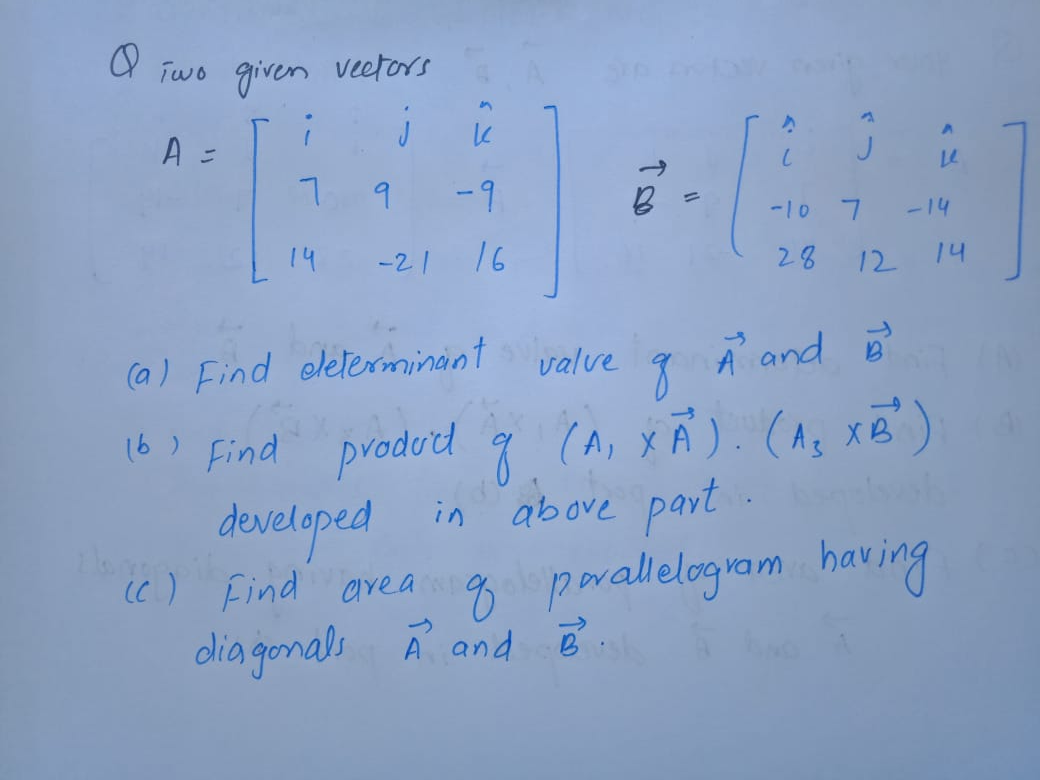 Q Two given vectors
A = [ i j k̂ B⃗ = [ î ĵ k̂
7 9 -9 -10 7 -14
14 -21 16 ] 28 12 14 ]
(a) Find determinant value of A⃗ and B⃗
(b) Find product of (A₁ × A⃗). (A₃ × B⃗)
developed in above part.
(c) Find area of parallelogram having
diagonals A⃗ and B⃗.